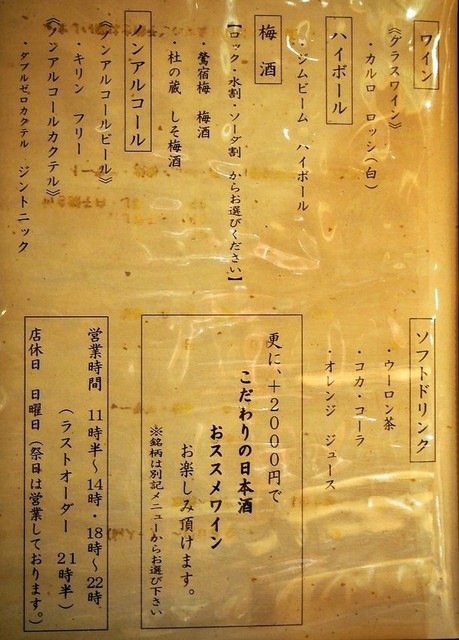 ワイン
《グラスワイン》
・カルロ ロッシ(白)
ハイボール
・ジムビーム ハイボール
梅酒
【ロック・水割・ソーダ割 からお選びください】
・鶯宿梅 梅酒
・杜の蔵 しそ梅酒
ノンアルコール
《ノンアルコールビール》
・キリン フリー
《ノンアルコールカクテル》
・ダブルゼロカクテル ジントニック
ソフトドリンク
・ウーロン茶
・コカ・コーラ
・オレンジ ジュース
更に、+2000円で
こだわりの日本酒
おススメワイン
お楽しみ頂けます。
※銘柄は別記メニューからお選び下さい
営業時間 11時半~14時・18時~22時
(ラストオーダー 21時半)
店休日 日曜日(祭日は営業しております。)